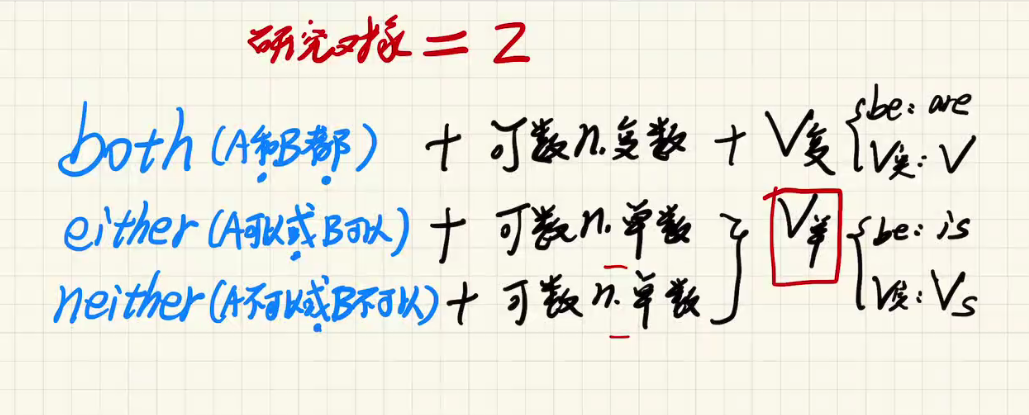 研究对象 = 2
both (A和B都) + 可数n.复数 + V复 { be: are
V实: V
either (A可以或B可以) + 可数n.单数 } V单 { be: is
neither (A不可以或B不可以) + 可数n.单数 V实: Vs